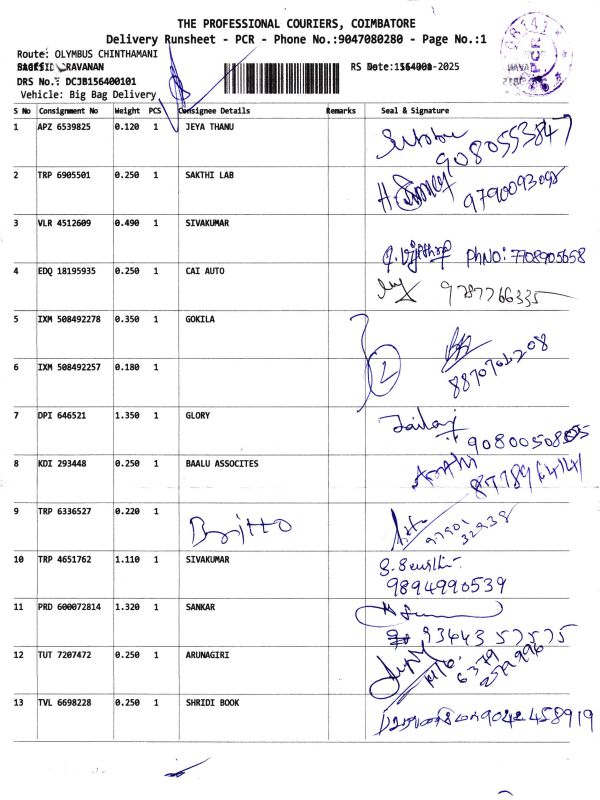 THE PROFESSIONAL COURIERS, COIMBATORE
Delivery Runsheet - PCR - Phone No.:9047080280 - Page No.:1
Route: OLYMBUS CHINTHAMANI
RS Date:
-2025
DRS No.: DCJB156400101
Vehicle: Big Bag Delivery
PCR
S No Consignment No Weight PCS Consignee Details Remarks Seal & Signature
1 APZ 6539825 0.120 1 JEYA THANU 9080553847
2 TRP 6905501 0.250 1 SAKTHI LAB
3 VLR 4512609 0.490 1 SIVAKUMAR PhNO: 7708905658
4 EDQ 18195935 0.250 1 CAI AUTO 9787766335
5 IXM 508492278 0.350 1 GOKILA
6 IXM 508492257 0.180 1 2
7 DPI 646521 1.350 1 GLORY
8 KDI 293448 0.250 1 BAALU ASSOCITES
9 TRP 6336527 0.220 1 Britto 97901
32938
10 TRP 4651762 1.110 1 SIVAKUMAR
9894990539
11 PRD 600072814 1.320 1 SANKAR
93443 57575
12 TUT 7207472 0.250 1 ARUNAGIRI 6379
13 TVL 6698228 0.250 1 SHRIDI BOOK 9042458919